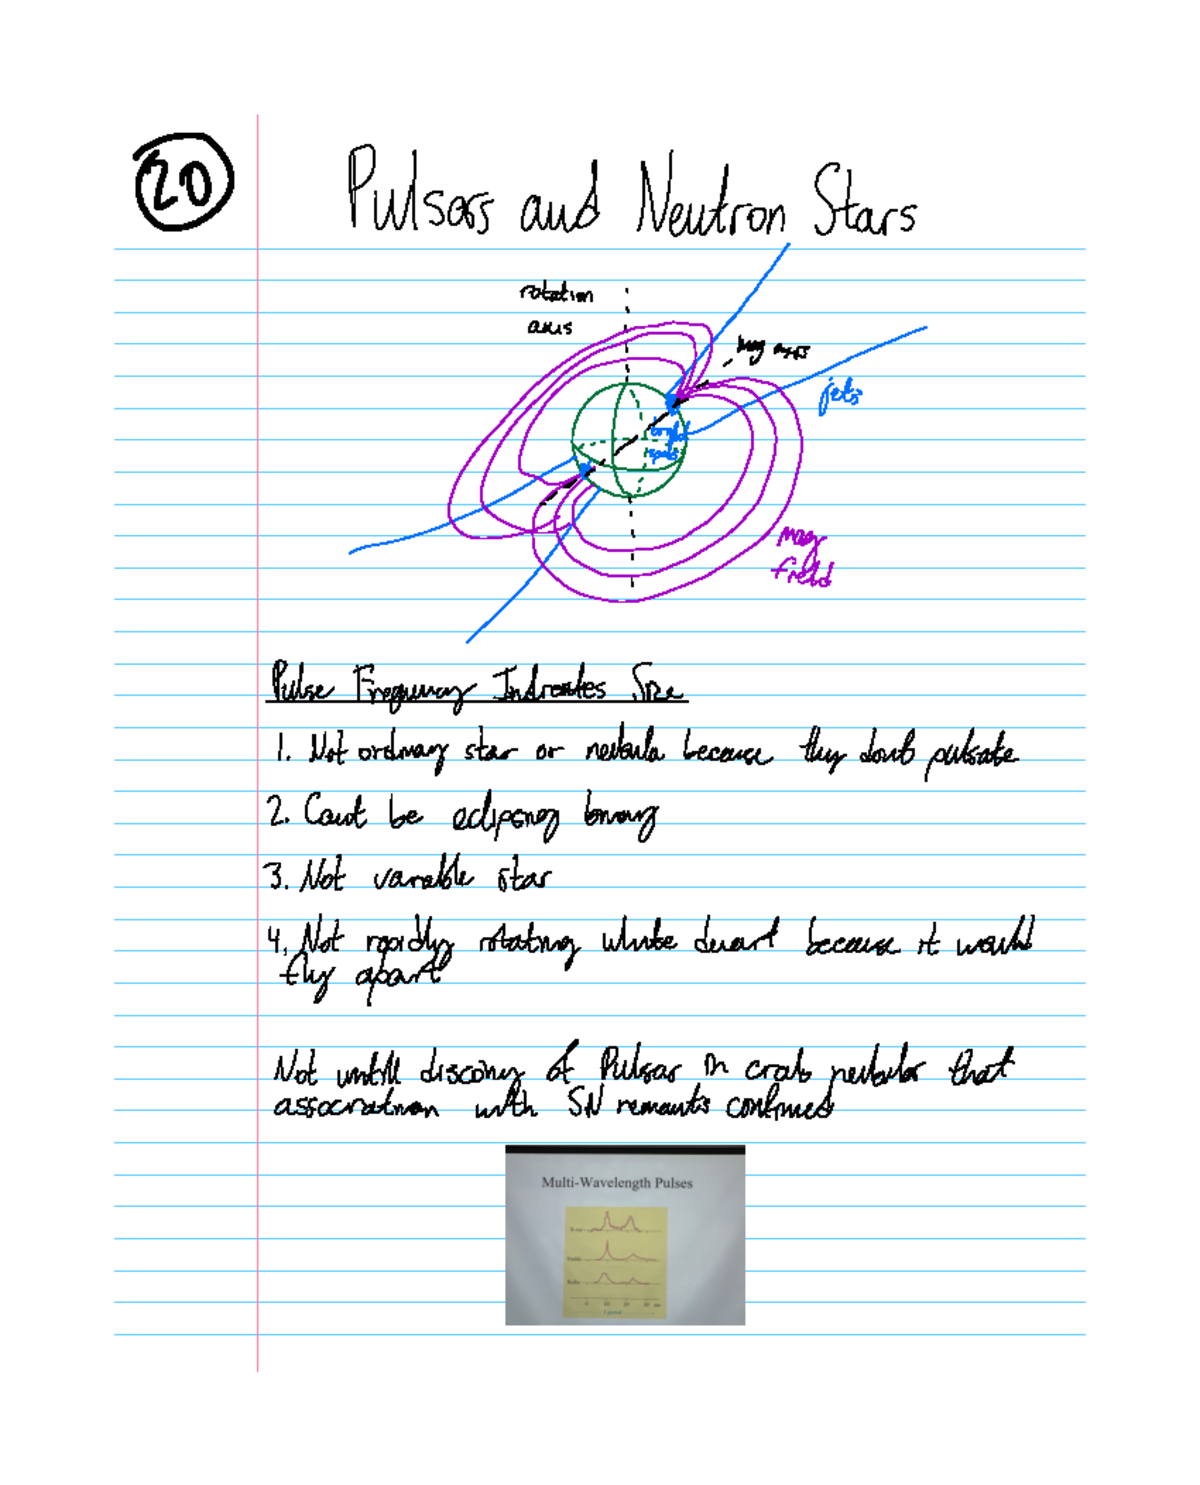 20
Pulsars and Neutron Stars
rotation
axis
mag axis
jets
spots
mag
field
Pulse Frequency Indicates Size
1. Not ordinary star or nebula because they dont pulsate
2. Cant be eclipsing binary
3. Not variable star
4. Not rapidly rotating white dwarf because it would
fly apart
Not untill discovry of Pulsar in crab nebular that
association with SN remants confirmed
Multi-Wavelength Pulses